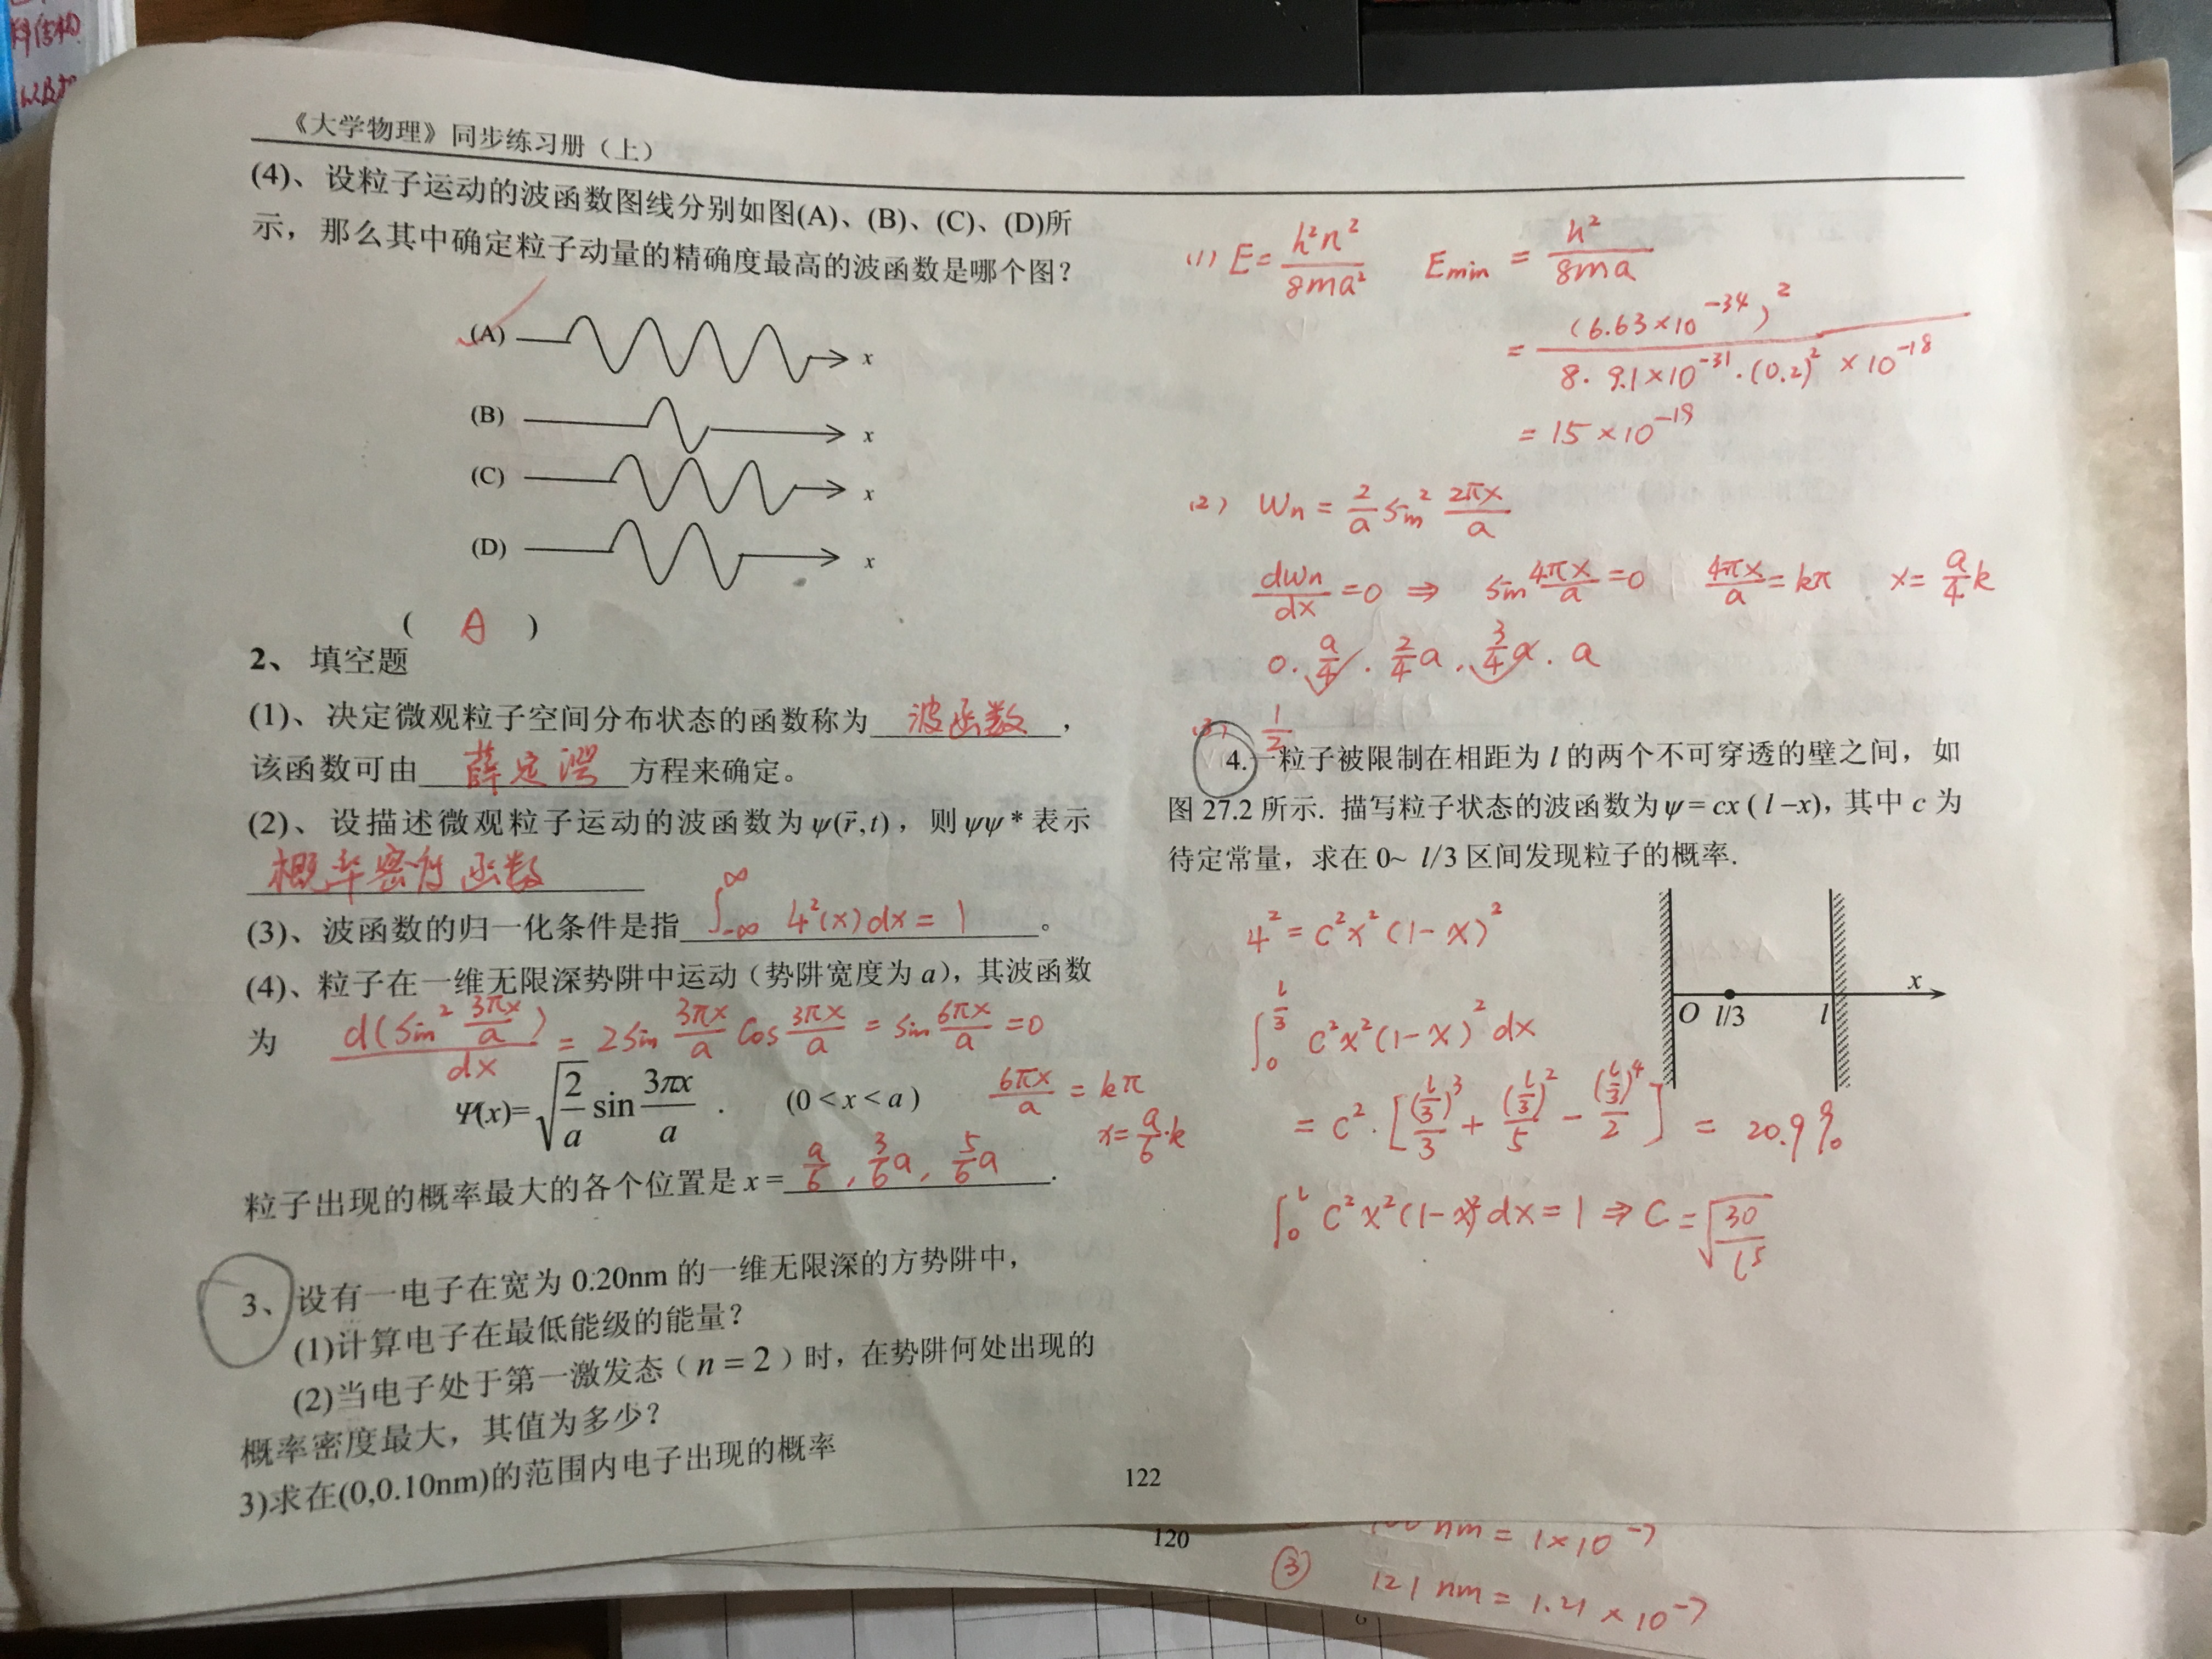 科信构
以及加
《大学物理》同步练习册（上）
(4)、设粒子运动的波函数图线分别如图(A)、(B)、(C)、(D)所
示，那么其中确定粒子动量的精确度最高的波函数是哪个图？
(A) x
(B) x
(C) x
(D) x
( A )
2、 填空题
(1)、决定微观粒子空间分布状态的函数称为 波函数 ，
该函数可由 薛定谔 方程来确定。
(2)、设描述微观粒子运动的波函数为ψ(r⃗,t)，则ψψ*表示
概率密度函数
(3)、波函数的归一化条件是指 ∫_{-∞}^{∞} 4²(x)dx = 1 。
(4)、粒子在一维无限深势阱中运动（势阱宽度为 a)，其波函数
为 d(sin² 3πx/a)/dx = 2sin 3πx/a cos 3πx/a = sin 6πx/a = 0
Ψ(x)=√(2/a) sin 3πx/a . (0 < x < a ) 6πx/a = kπ
x= a/6·k
粒子出现的概率最大的各个位置是 x = a/6 , 3/6 a, 5/6 a .
3、设有一电子在宽为 0.20nm 的一维无限深的方势阱中，
(1)计算电子在最低能级的能量？
(2)当电子处于第一激发态（n = 2）时，在势阱何处出现的
概率密度最大，其值为多少？
3)求在(0,0.10nm)的范围内电子出现的概率
(1) E= h²n²/8ma² Emin = h²/8ma
= (6.63×10^-34)²/8·9.1×10^-31·(0.2)²×10^-18
= 15×10^-19
(2) Wn = 2/a sin² 2πx/a
dWn/dx =0 ⇒ sin 4πx/a =0 4πx/a = kπ x= a/4 k
0. a/4 . 2/4 a . 3/4 a . a
(3) 1/2
4.一粒子被限制在相距为 l 的两个不可穿透的壁之间，如
图 27.2 所示. 描写粒子状态的波函数为ψ= cx ( l −x), 其中 c 为
待定常量，求在 0~ l/3 区间发现粒子的概率.
4² = c²x²(l-x)²
x
O l/3 l
∫_0^{l/3} c²x²(l-x)² dx
= c²·[(l/3)³/3 + (l/3)²/5 - (l/3)⁴/2] = 20.9%
∫_0^l c²x²(l-x)² dx = 1 ⇒ C = √(30/l⁵)
122
120
nm = 1×10^-7
③ 121 nm = 1.21 × 10^-7